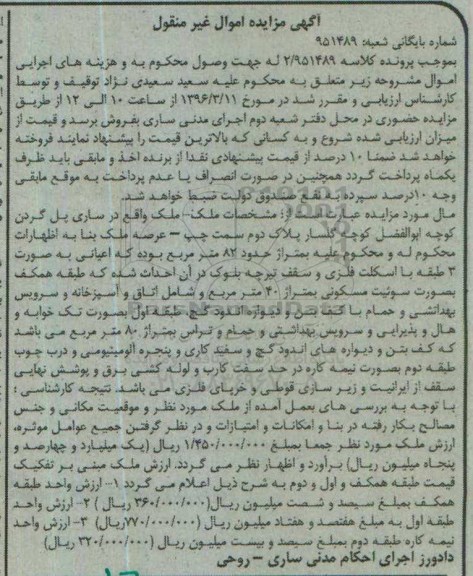 آگهی مزایده اموال غیر منقول
شماره بایگانی شعبه: ۹۵۱۴۸۹
بموجب پرونده کلاسه ۲/۹۵۱۴۸۹ له جهت وصول محکوم به و هزینه های اجرایی
اموال مشروحه زیر متعلق به محکوم علیه سعید سعیدی نژاد توقیف و توسط
کارشناس ارزیابی و مقرر شد در مورخ ۱۳۹۶/۳/۱۱ از ساعت ۱۰ الی ۱۲ از طریق
مزایده حضوری در محل دفتر شعبه دوم اجرای مدنی ساری بفروش برسد و قیمت از
میزان ارزیابی شده شروع و به کسانی که بالاترین قیمت را پیشنهاد نمایند فروخته
خواهد شد ضمنا ۱۰ درصد از قیمت پیشنهادی نقدا از برنده اخذ و مابقی باید ظرف
یکماه پرداخت گردد همچنین در صورت انصراف یا عدم پرداخت به موقع مابقی
وجه ۱۰درصد سپرده به نفع صندوق دولت ضبط خواهد شد.
مال مورد مزایده عبارت است از: مشخصات ملک– ملک واقع در ساری پل گردن
کوچه ابوالفضل کوچه پلاک دوم سمت چپ – عرصه ملک بنا به اظهارات
محکوم له و محکوم علیه بمتراژ حدود ۸۲ متر مربع بوده که اعیانی به صورت
۳ طبقه با اسکلت فلزی و سقف تیرچه بلوک در آن احداث شده که طبقه همکف
بصورت سوئیت مسکونی بمتراژ ۴۰ متر مربع و شامل اتاق و آشپزخانه و سرویس
بهداشتی و حمام با کف بتن و دیواره اندود گچ، طبقه اول بصورت تک خوابه و
هال و پذیرایی و سرویس بهداشتی و حمام و تراس بمتراژ ۸۰ متر مربع می باشد
که کف بتن و دیواره های اندود گچ و سفید کاری و پنجره آلومینیومی و درب چوب
طبقه دوم بصورت نیمه کاره در حد سفت کارب و لوله کشی برق و پوشش نهایی
سقف از ایرانیت و زیر سازی قوطی و خرپای فلزی می باشد. نتیجه کارشناسی :
با توجه به بررسی های بعمل آمده از ملک مورد نظر و موقعیت مکانی و جنس
مصالح بکار رفته در بنا و امکانات و امتیازات و در نظر گرفتن جمیع عوامل موثره،
ارزش ملک مورد نظر جمعا بمبلغ ۱/۴۵۰/۰۰۰/۰۰۰ ریال (یک میلیارد و چهارصد و
پنجاه میلیون ریال) برآورد و اظهار نظر می گردد. ارزش ملک مبنی بر تفکیک
قیمت طبقه همکف و اول و دوم به شرح ذیل اعلام می گردد ۱– ارزش واحد طبقه
همکف بمبلغ سیصد و شصت میلیون ریال(۳۶۰/۰۰۰/۰۰۰ ریال ) ۲– ارزش واحد
طبقه اول به مبلغ هفتصد و هفتاد میلیون ریال (۷۷۰/۰۰۰/۰۰۰ریال) ۳– ارزش واحد
نیمه کاره طبقه دوم بمبلغ سیصد و بیست میلیون ریال (۳۲۰/۰۰۰/۰۰۰ ریال)
دادورز اجرای احکام مدنی ساری – روحی